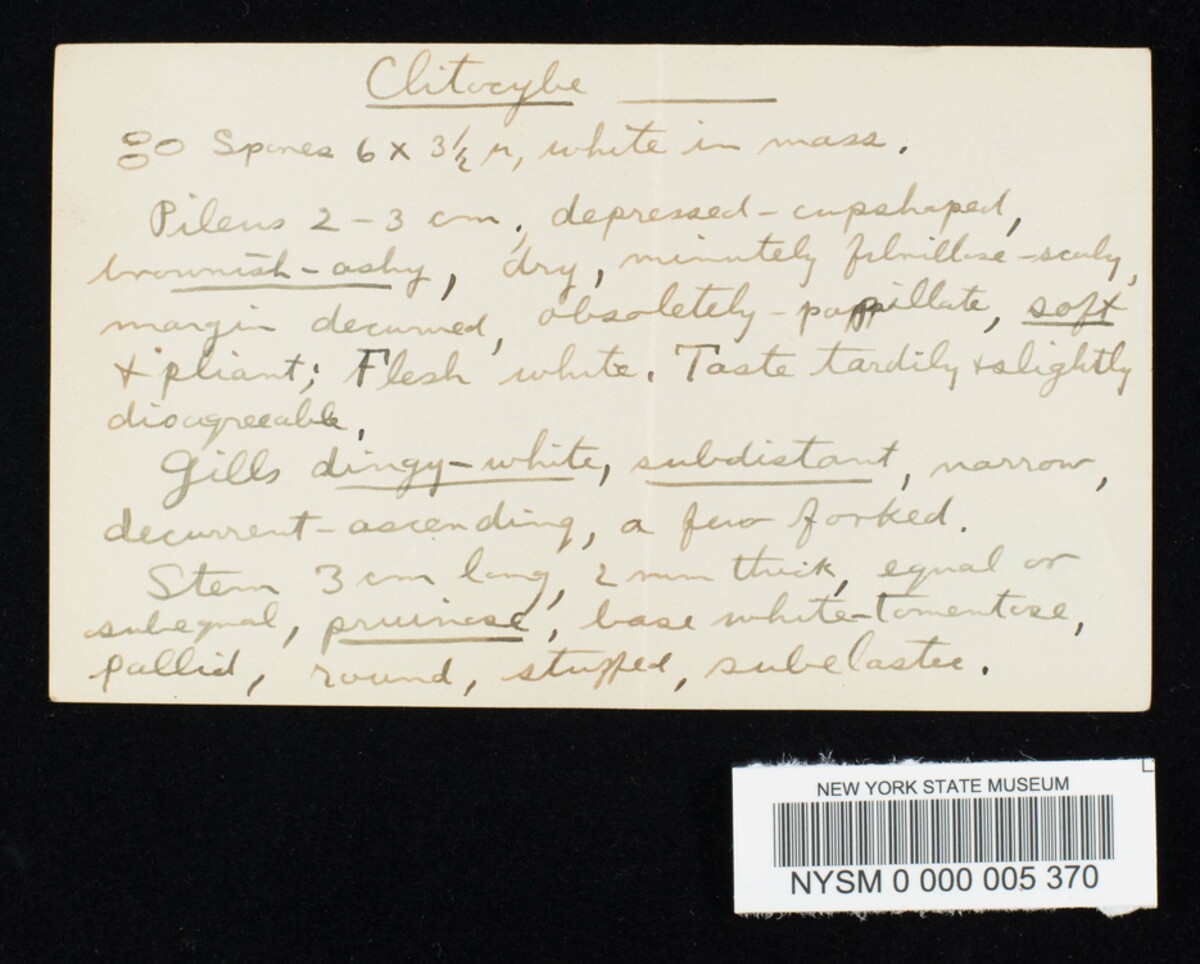 Clitocybe ______
Spores 6 x 3½ µ, white in mass.
Pileus 2-3 cm., depressed-cupshaped,
brownish-ashy, dry, minutely fibrillose-scaly,
margin decurved, obsoletely-pappillate, soft
& pliant; Flesh white. Taste tardily & slightly
disagreeable.
Gills dingy-white, subdistant, narrow,
decurrent-ascending, a few forked.
Stem 3 cm long, 2 mm thick, equal or
subequal, pruinose, base white-tomentose,
pallid, round, stuffed, subelastic.
NEW YORK STATE MUSEUM
NYSM 0 000 005 370